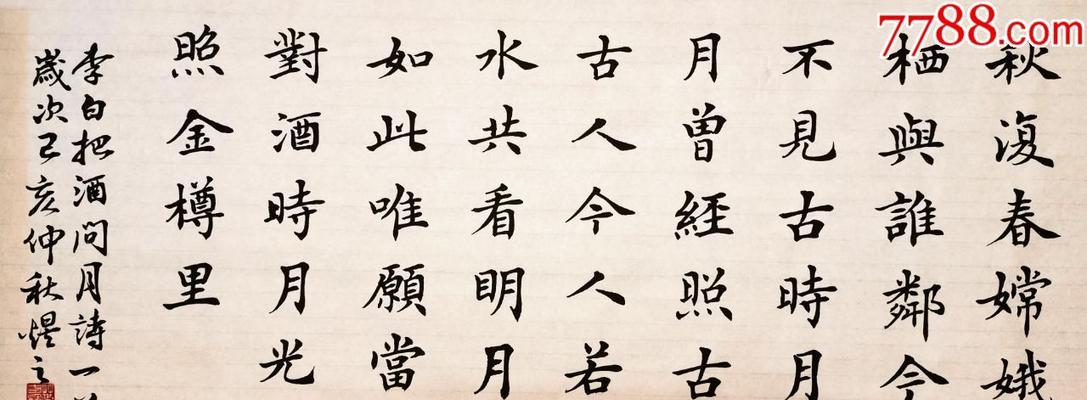 7788.com
秋復春嫦娥
栖與誰鄰今
不見古時月
月曾經照古
古人今人若
水共看明月
如此唯願當
對酒時月光
照金樽里
李白把酒問月詩一
歲次己亥仲秋煜之